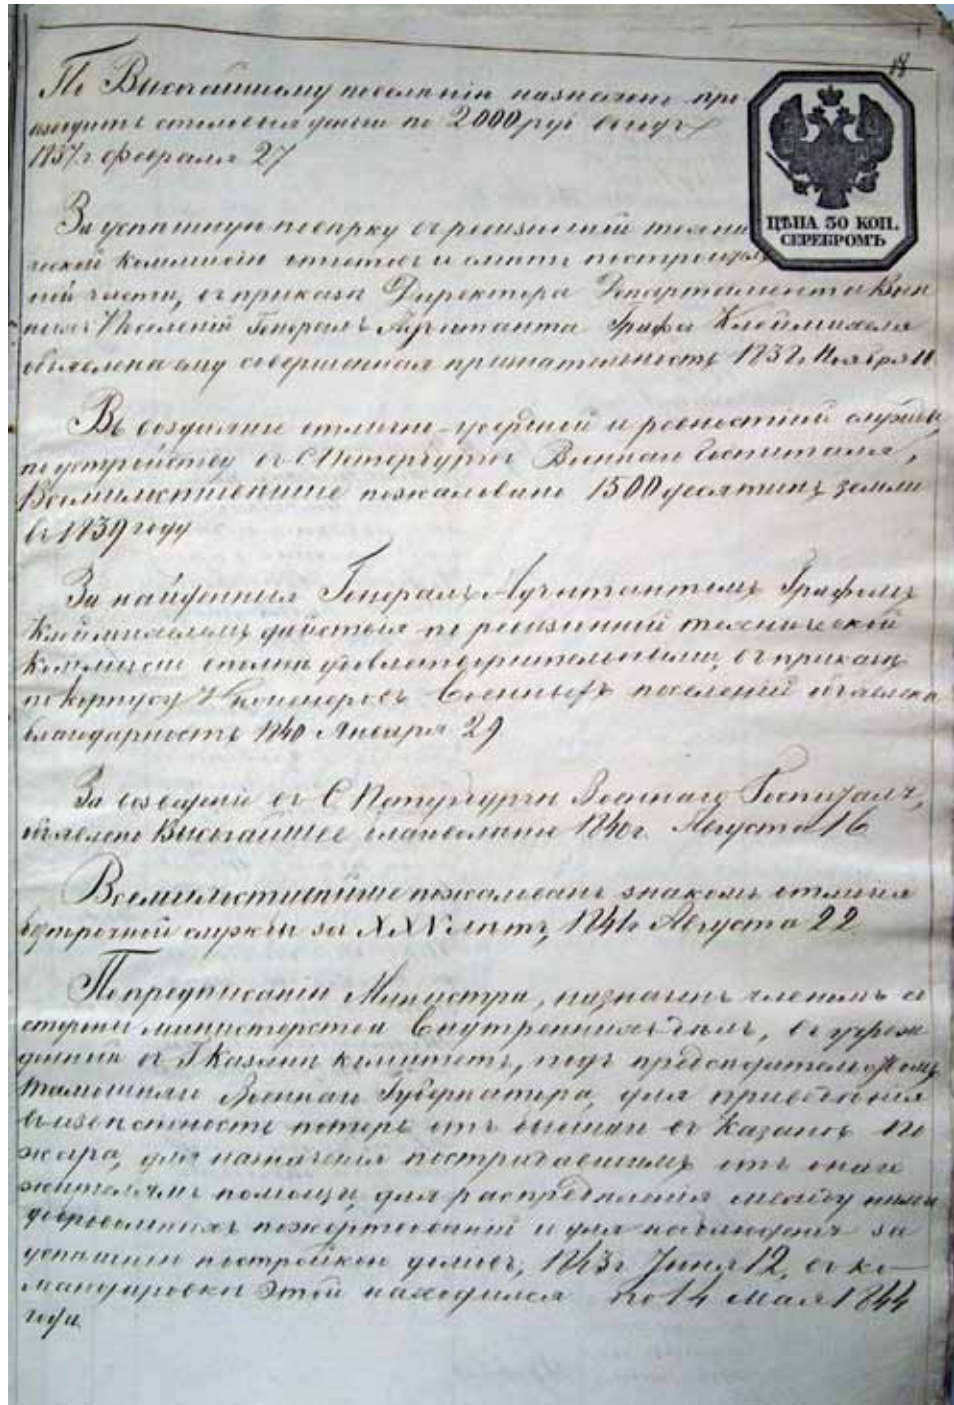 По Высочайшему повелѣнію назначено про
изводить столовыя деньги по 2000 руб въ годъ
1837 г февраля 27
ЦѢНА 30 КОП.
СЕРЕБРОМЪ
За успѣшную повѣрку въ ревизіонной техни
ческой Коммисіи отчетовъ и смѣтъ по строитель
ной части, въ приказѣ Директора Департамента Воен
ныхъ Поселеній Генералъ Адъютанта Графа Клейнмихеля
объявлена ему совершенная признательность 1838 г. Ноября
Въ воздаяніе отлично-усердной и ревностной службы,
по устройству въ С Петербургѣ Военнаго Госпиталя,
Всемилостивѣйше пожаловано 1500 десятинъ земли
въ 1839 году
За найденныя Генералъ Адъютантомъ Графомъ
Клейнмихелемъ действія по ревизіонной технической
Коммисіи вполнѣ удовлетворительными, въ приказѣ
по корпусу Инженеровъ Военныхъ поселеній объявлена
благодарность 1840 Января 29
За возведеніе въ С Петербургѣ Военнаго Госпиталя,
объявлено Высочайшее благоволеніе 1840 г. Августа 16
Всемилостивѣйше пожалованъ знакомъ отличія
безпорочной службы за XXV лѣтъ, 1841 г Августа 22
По предписанію Министра, назначенъ членомъ со
стороны министерства Внутреннихъ дѣлъ, въ учреж
денный въ Г Казани комитетъ, подъ предсѣдательствомъ
тамошняго Военнаго Губернатора, для приведенія
въ извѣстность потерь отъ бывшаго въ Казанѣ по
жара, для назначенія пострадавшимъ отъ онаго
жителямъ помощи, для распредѣленія между ними
добровольныхъ пожертвованій и для наблюденія за
успѣшною постройкою домовъ, 1843 г Іюня 12, въ ко
мандировкѣ этой находился по 14 мая 1844
года